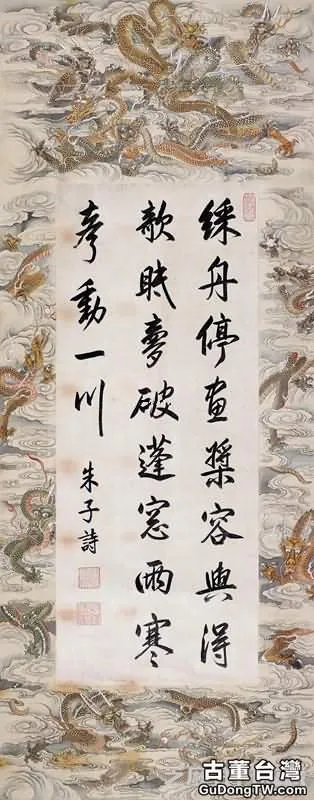 綵舟停畫槳容與得
欹眠夢破蓬窓雨寒
聲動一川
朱子詩
古董台灣
GuDongTW.com